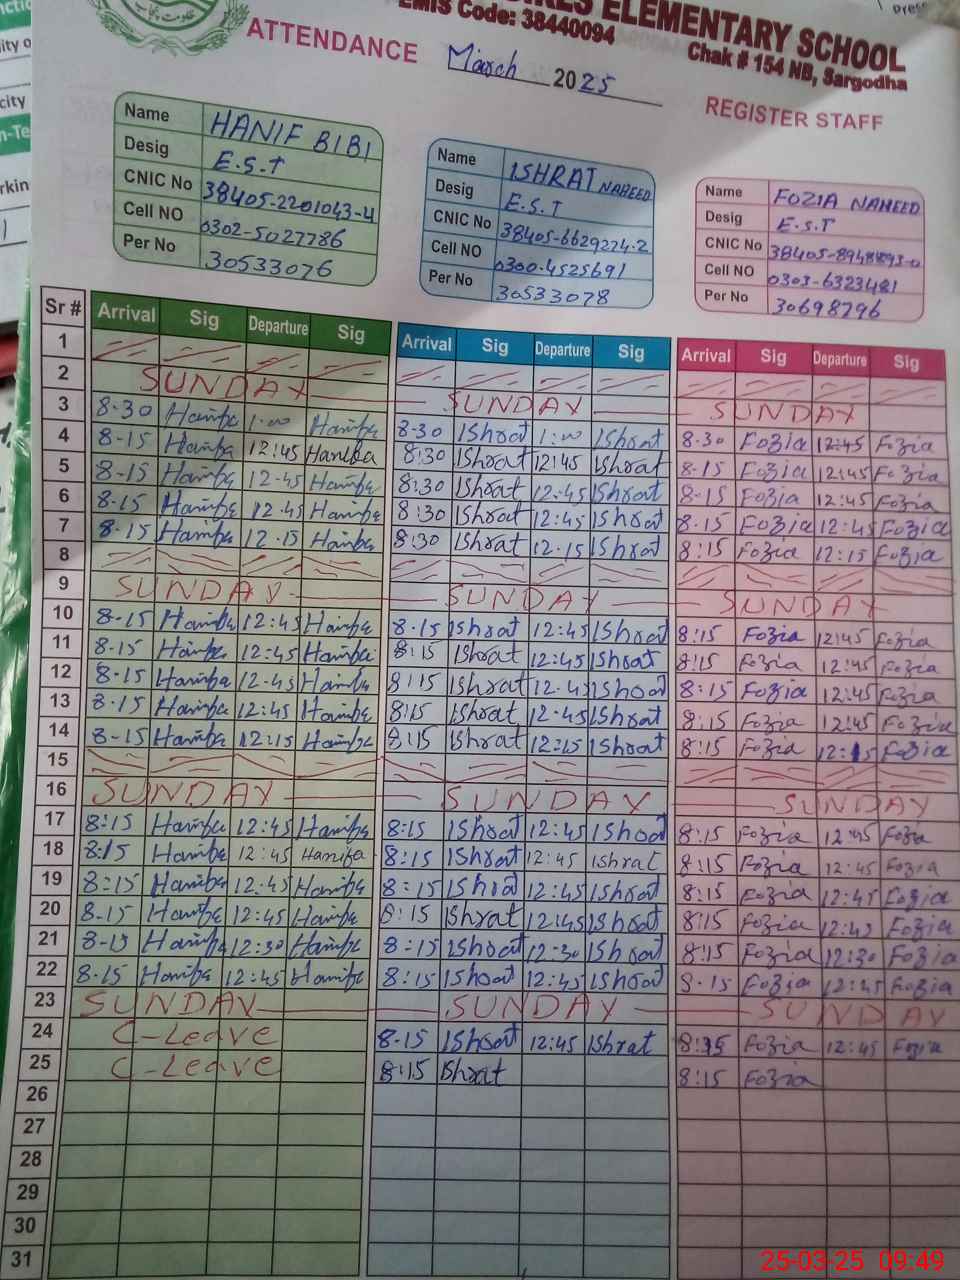 GIRLS ELEMENTARY SCHOOL
EMIS Code: 38440094
Chak # 154 NB, Sargodha
ATTENDANCE March 2025
REGISTER STAFF
Name HANIF BIBI
Desig E.S.T
CNIC No 38405-2201043-4
Cell NO 0302-5027786
Per No 30533076
Name ISHRAT NAHEED
Desig E.S.T
CNIC No 38405-6629274-2
Cell NO 0300-4525691
Per No 30533078
Name FOZIA NAHEED
Desig E.S.T
CNIC No 38405-8948893-0
Cell NO 0303-6323481
Per No 30698796
Sr # Arrival Sig Departure Sig Arrival Sig Departure Sig Arrival Sig Departure Sig
1
2 SUNDAY SUNDAY SUNDAY
3 8-30 Hanifa 1:00 Hanifa 8-30 IShrat 1:00 IShrat 8-30 Fozia 12:45 Fozia
4 8-15 Hanifa 12:45 Hanifa 8:30 IShrat 12:45 IShrat 8-15 Fozia 12:45 Fozia
5 8-15 Hanifa 12-45 Hanifa 8:30 IShrat 12-45 IShrat 8-15 Fozia 12:45 Fozia
6 8-15 Hanifa 12-45 Hanifa 8:30 IShrat 12:45 IShrat 8-15 Fozia 12:45 Fozia
7 8-15 Hanifa 12-15 Hanifa 8:30 IShrat 12-15 IShrat 8:15 Fozia 12:15 Fozia
8
9 SUNDAY SUNDAY SUNDAY
10 8-15 Hanifa 12:45 Hanifa 8-15 IShrat 12:45 IShrat 8:15 Fozia 12:45 Fozia
11 8-15 Hanifa 12:45 Hanifa 8:15 IShrat 12:45 IShrat 8:15 Fozia 12:45 Fozia
12 8-15 Hanifa 12-45 Hanifa 8:15 IShrat 12-45 IShrat 8:15 Fozia 12:45 Fozia
13 8-15 Hanifa 12:45 Hanifa 8:15 IShrat 12-45 IShrat 8:15 Fozia 12:45 Fozia
14 8-15 Hanifa 12:15 Hanifa 8:15 IShrat 12:15 IShrat 8:15 Fozia 12:15 Fozia
15
16 SUNDAY SUNDAY SUNDAY
17 8:15 Hanifa 12:45 Hanifa 8:15 IShrat 12:45 IShrat 8:15 Fozia 12:45 Fozia
18 8:15 Hanifa 12:45 Hanifa 8:15 IShrat 12:45 IShrat 8:15 Fozia 12:45 Fozia
19 8:15 Hanifa 12:45 Hanifa 8:15 IShrat 12:45 IShrat 8:15 Fozia 12:45 Fozia
20 8-15 Hanifa 12:45 Hanifa 8:15 IShrat 12:45 IShrat 8:15 Fozia 12:45 Fozia
21 8-15 Hanifa 12:30 Hanifa 8:15 IShrat 12-30 IShrat 8:15 Fozia 12:30 Fozia
22 8-15 Hanifa 12:45 Hanifa 8:15 IShrat 12:45 IShrat 8-15 Fozia 12:45 Fozia
23 SUNDAY SUNDAY SUNDAY
24 C-Leave 8-15 IShrat 12:45 IShrat 8:15 Fozia 12:45 Fozia
25 C-Leave 8:15 IShrat 8:15 Fozia
26
27
28
29
30
31
25-03-25 09:49